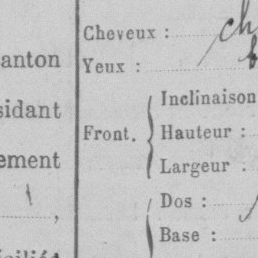 anton
sidant
ement
Cheveux : ch
Yeux :
Front.
Inclinaison
Hauteur :
Largeur :
Dos :
Base :